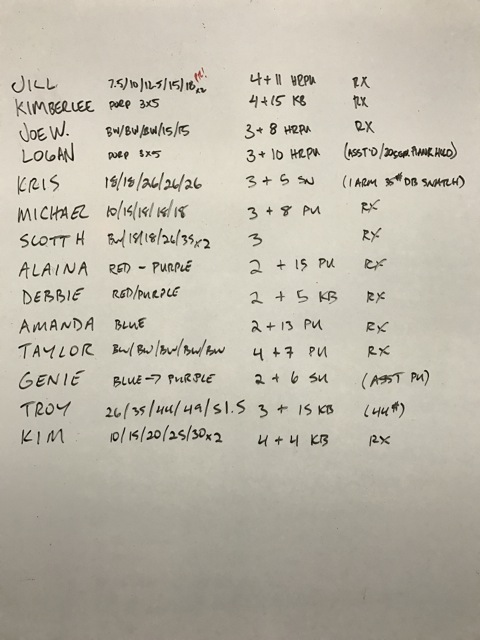 JILL 7.5/10/12.5/15/18x2 PR! 4+11 HRPU RX
KIMBERLEE PURP 3x5 4+15 KB RX
JOE W. BW/BW/BW/15/15 3+8 HRPU RX
LOGAN PURP 3x5 3+10 HRPU (ASST'D/20SEC PLANK HOLD)
KRIS 18/18/26/26/26 3+5 SN (1 ARM 35# DB SNATCH)
MICHAEL 10/15/18/18/18 3+8 PU RX
SCOTT H BW/18/18/26/35x2 3 RX
ALAINA RED - PURPLE 2+15 PU RX
DEBBIE RED/PURPLE 2+5 KB RX
AMANDA BLUE 2+13 PU RX
TAYLOR BW/BW/BW/BW/BW 4+7 PU RX
GENIE BLUE → PURPLE 2+6 SN (ASST PU)
TROY 26/35/44/49/51.5 3+15 KB (44#)
KIM 10/15/20/25/30x2 4+4 KB RX